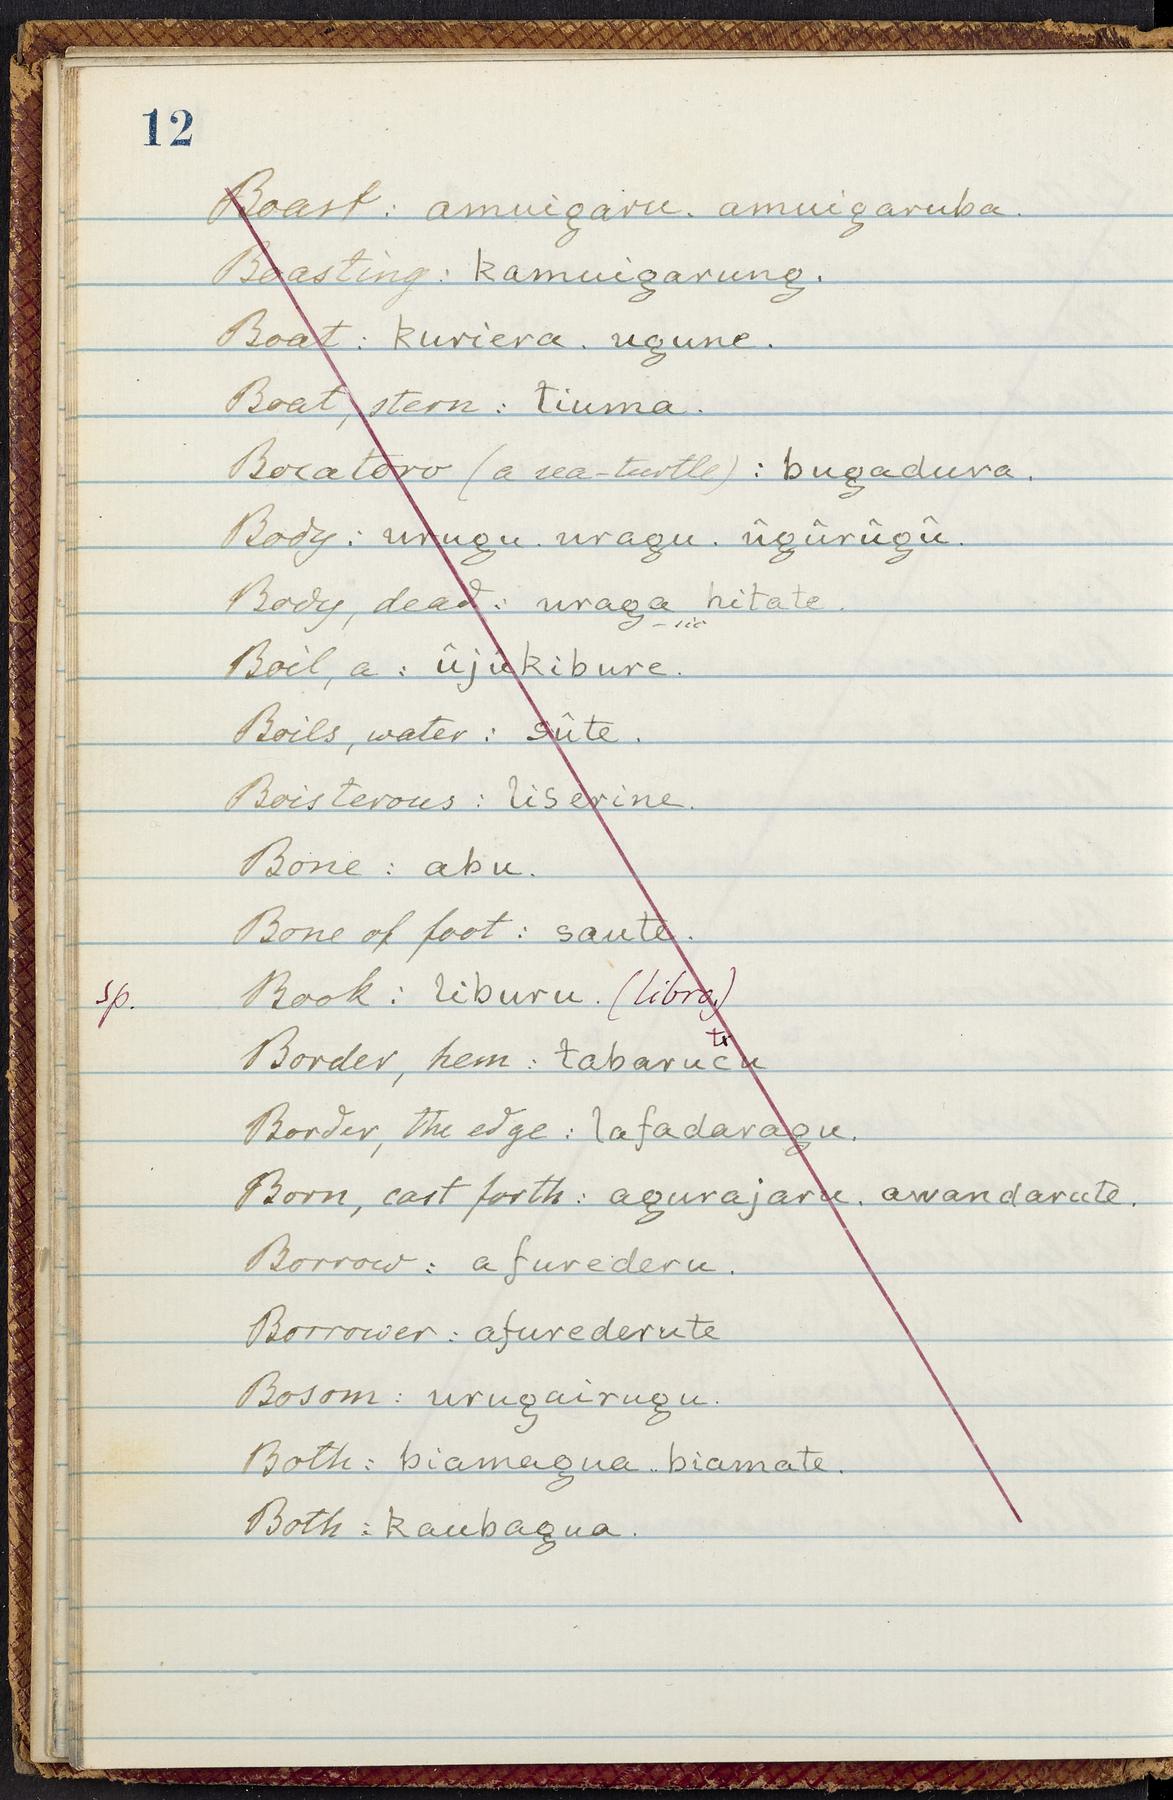 12
Boast: amuigaru. amuigaruba.
Boasting: kamuigarung.
Boat: kuriera. ugune.
Boat, stern: tiuma.
Bocatoro (a sea-turtle): bugadura.
Body: urugu. uragu. ûgûrûgû.
Body, dead: uraga hitate.
- sic
Boil, a: ûjûkibure.
Boils, water: sûte.
Boisterous: liserine.
Bone: abu.
Bone of foot: saute.
sp. Book: liburu. (libro)
tr
Border, hem: tabarucu
Border, the edge: lafadaragu.
Born, cast forth: agurajaru. awandarute.
Borrow: afurederu.
Borrower: afurederute
Bosom: urugairugu.
Both: biamagua. biamate.
Both: kaubagua.